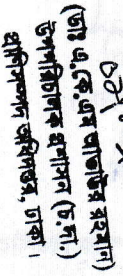 (ডাঃ এ,কে,এম আজাদুর রহমান)
উপপরিচালক প্রশাসন (চঃ দাঃ)
প্রাণিসম্পদ অধিদপ্তর, ঢাকা।